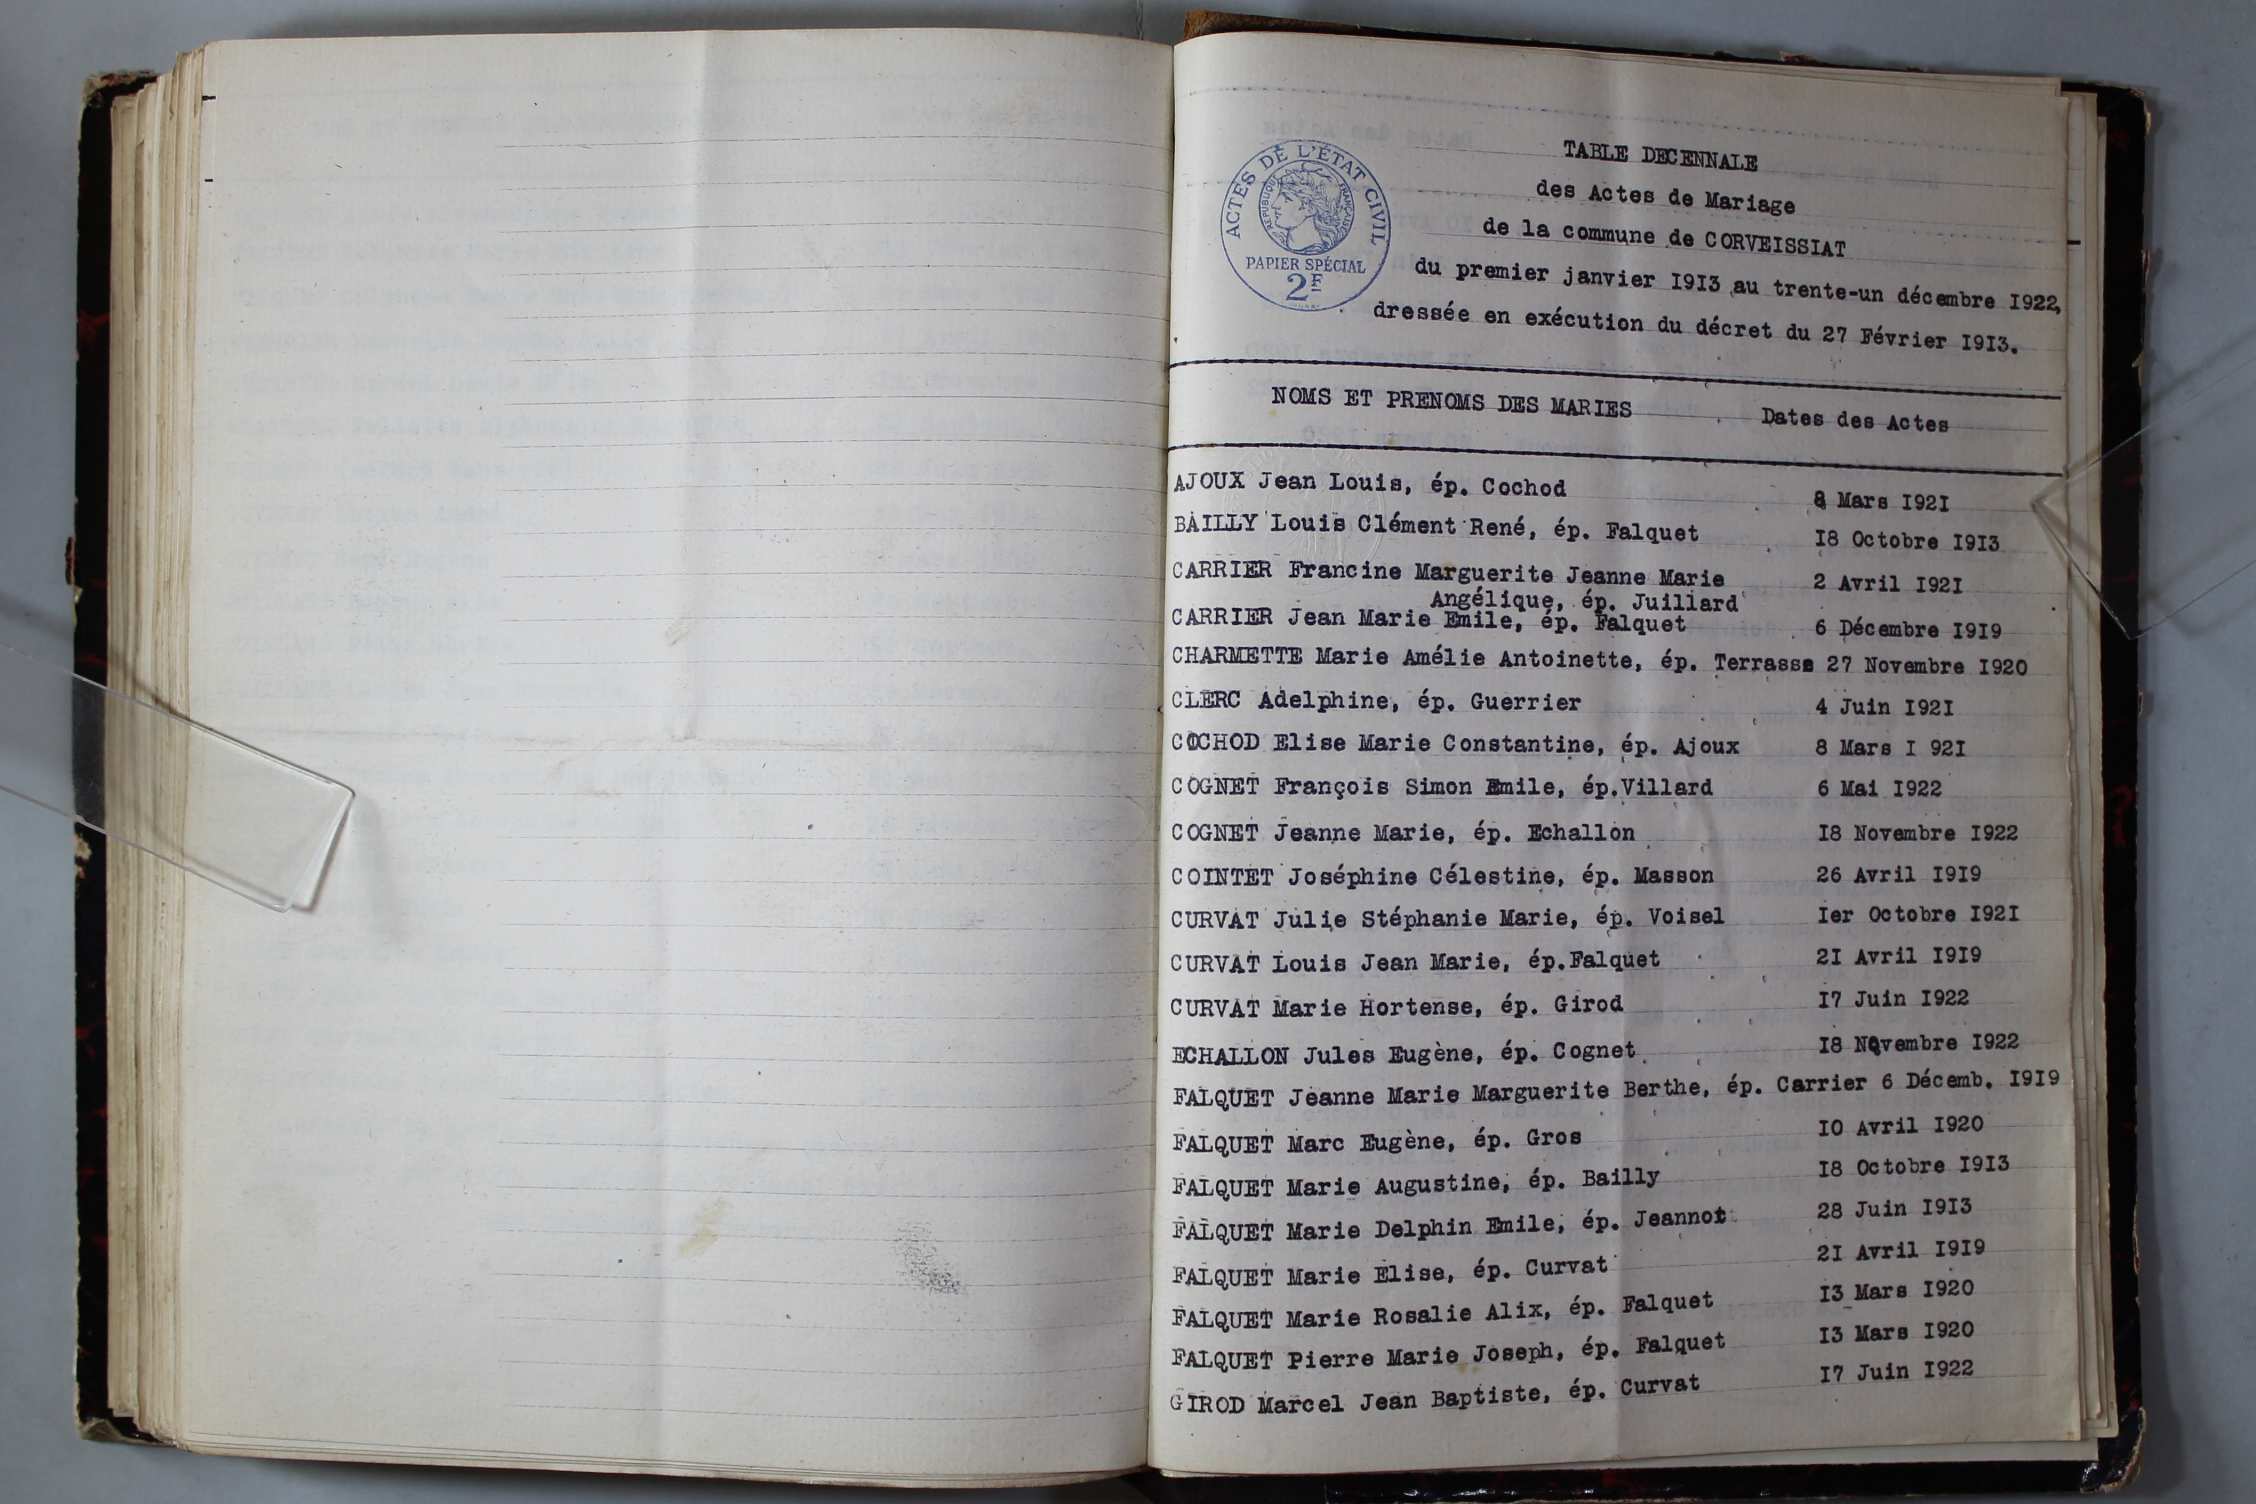 ACTES DE L'ÉTAT CIVIL
RÉPUBLIQUE FRANÇAISE
PAPIER SPÉCIAL
2F
TABLE DECENNALE
des Actes de Mariage
de la commune de CORVEISSIAT
du premier janvier I9I3 au trente-un décembre I922,
dressée en exécution du décret du 27 Février I9I3.
NOMS ET PRENOMS DES MARIES Dates des Actes
AJOUX Jean Louis, ép. Cochod 8 Mars I92I
BAILLY Louis Clément René, ép. Falquet I8 Octobre I9I3
CARRIER Francine Marguerite Jeanne Marie 2 Avril I92I
Angélique, ép. Juillard
CARRIER Jean Marie Emile, ép. Falquet 6 Décembre I9I9
CHARMETTE Marie Amélie Antoinette, ép. Terrasse 27 Novembre I920
CLERC Adelphine, ép. Guerrier 4 Juin I92I
COCHOD Elise Marie Constantine, ép. Ajoux 8 Mars I 92I
COGNET François Simon Emile, ép.Villard 6 Mai I922
COGNET Jeanne Marie, ép. Echallon I8 Novembre I922
COINTET Joséphine Célestine, ép. Masson 26 Avril I9I9
CURVAT Julie Stéphanie Marie, ép. Voisel Ier Octobre I92I
CURVAT Louis Jean Marie, ép.Falquet 2I Avril I9I9
CURVAT Marie Hortense, ép. Girod I7 Juin I922
ECHALLON Jules Eugène, ép. Cognet I8 Novembre I922
FALQUET Jeanne Marie Marguerite Berthe, ép. Carrier 6 Décemb. I9I9
FALQUET Marc Eugène, ép. Gros I0 Avril I920
FALQUET Marie Augustine, ép. Bailly I8 Octobre I9I3
FALQUET Marie Delphin Emile, ép. Jeannot 28 Juin I9I3
FALQUET Marie Elise, ép. Curvat 2I Avril I9I9
FALQUET Marie Rosalie Alix, ép. Falquet I3 Mars I920
FALQUET Pierre Marie Joseph, ép. Falquet I3 Mars I920
GIROD Marcel Jean Baptiste, ép. Curvat I7 Juin I922